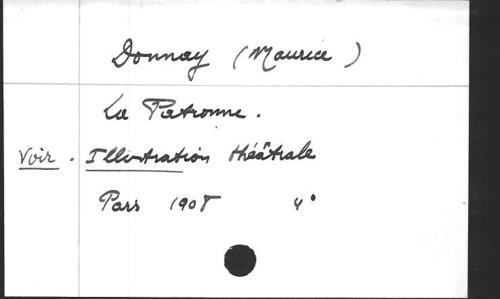 Donnay (Maurice)
La Patronne.
Voir. Illustration théâtrale
Paris 1908 4°